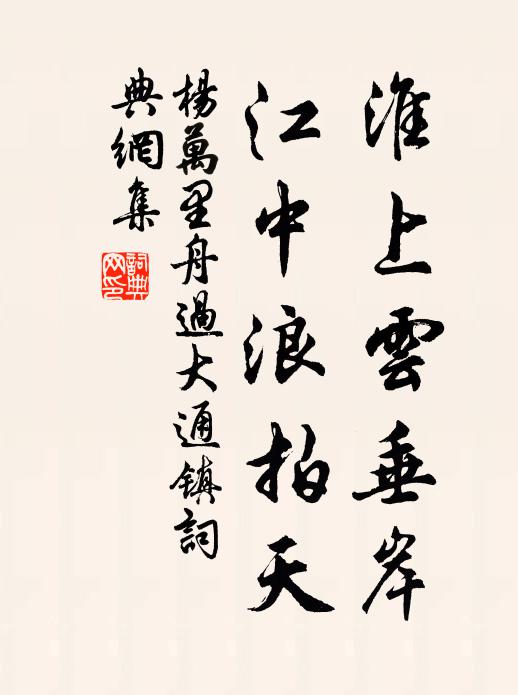 淮上雲垂岸
江中浪拍天
楊萬里舟過大通鎮詞
典網集
詞典
网印